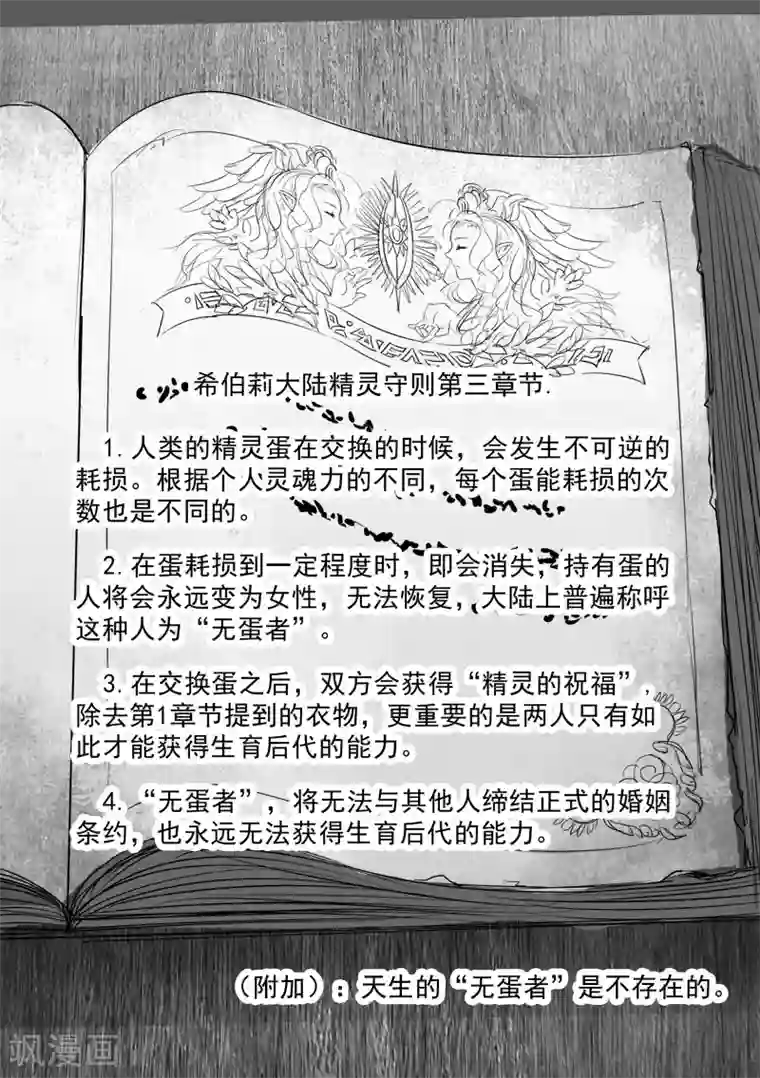 希伯莉大陆精灵守则第三章节.
1.人类的精灵蛋在交换的时候，会发生不可逆的
耗损。根据个人灵魂力的不同，每个蛋能耗损的次
数也是不同的。
2.在蛋耗损到一定程度时，即会消失，持有蛋的
人将会永远变为女性，无法恢复，大陆上普遍称呼
这种人为“无蛋者”。
3.在交换蛋之后，双方会获得“精灵的祝福”，
除去第1章节提到的衣物，更重要的是两人只有如
此才能获得生育后代的能力。
4.“无蛋者”，将无法与其他人缔结正式的婚姻
条约，也永远无法获得生育后代的能力。
（附加）：天生的“无蛋者”是不存在的。
飒漫画